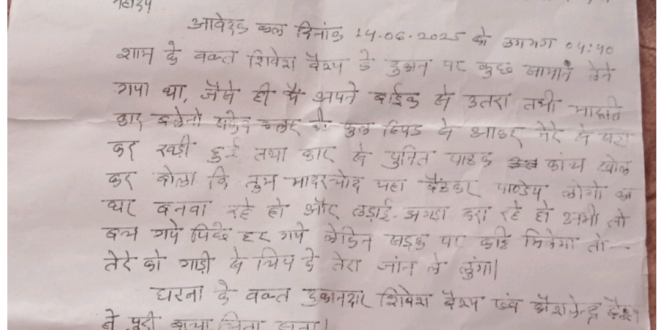 महोदय
आवेदक कल दिनांक 14-06-2025 के लगभग 04:40
शाम के वक्त शिवेश वैश्य के दुकान पर कुछ सामान लेने
गया था, जैसे ही मै अपने बाईक से उतरा तभी मारूति
कार सफेद कलर के फुल स्पिड से आकर मेरे से सटा
कर खडी हुई तथा कार से पुनित पाठक कांच खोल
कर बोला कि तुम मादरचोद यहा बैठकर पाण्डेय लोगो का
घर बनवा रहे हो और लडाई-झगडा करा रहे हो अभी तो
बच गये पिछे हट गये लेकिन सडक पर कहि मिलेगा तो --
तेरे को गाडी से चिप दे तेरा जांन ले लुंगा।
घटना के वक्त दुकानदार शिवेश वैश्य एंव वैश्य
ने पूरी